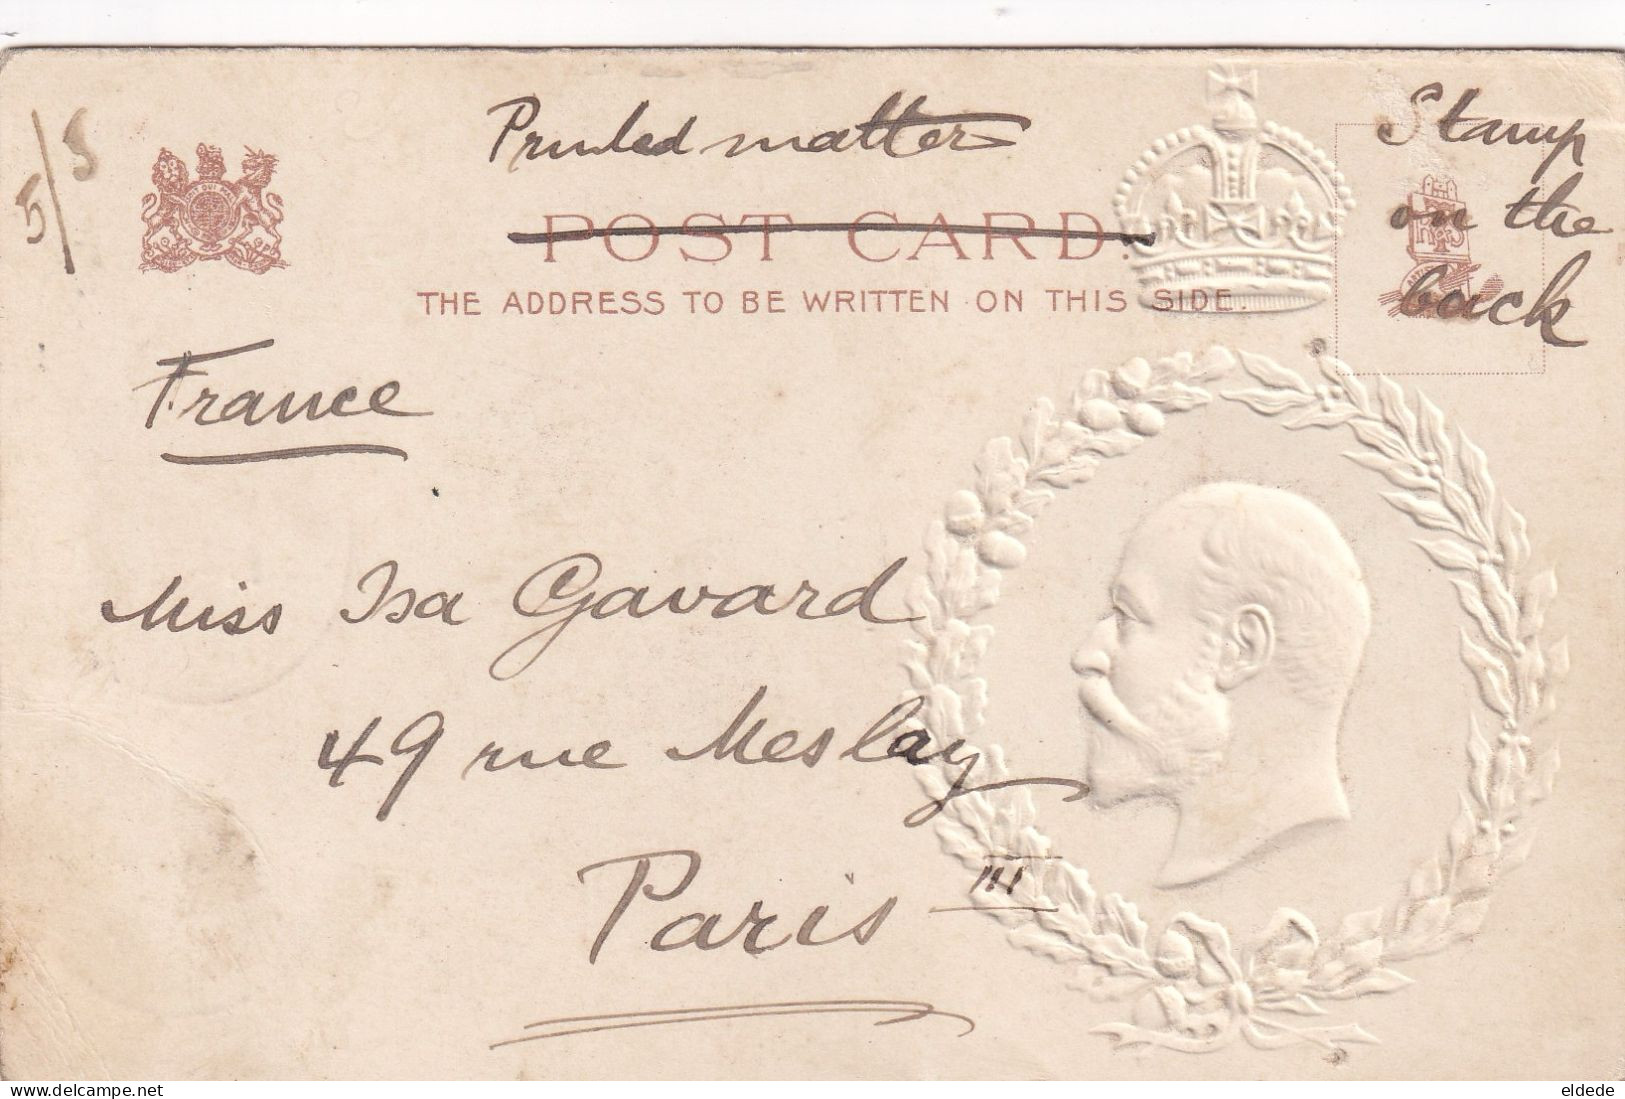 5/5
Printed matter
POST CARD.
THE ADDRESS TO BE WRITTEN ON THIS SIDE.
Stamp
on the
back
France
Miss Isa Gavard
49 rue Meslay
Paris III
eldede